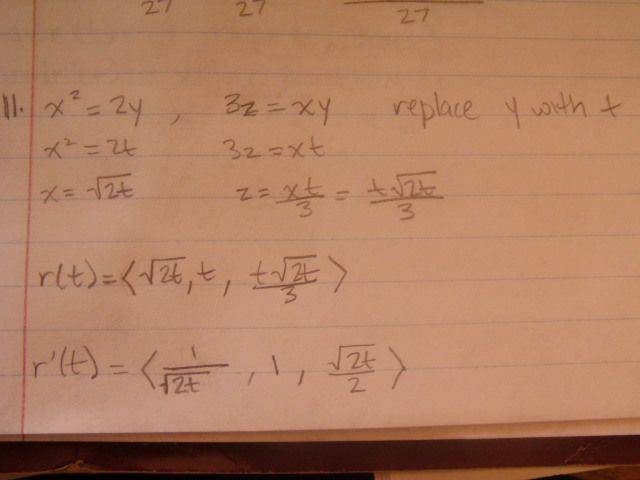 27 27 27
11. x² = 2y , 3z = xy replace y with t
x² = 2t 3z = xt
x = √2t z = xt/3 = t√2t/3
r(t) = ⟨√2t, t, t√2t/3⟩
r'(t) = ⟨1/√2t , 1, √2t/2⟩